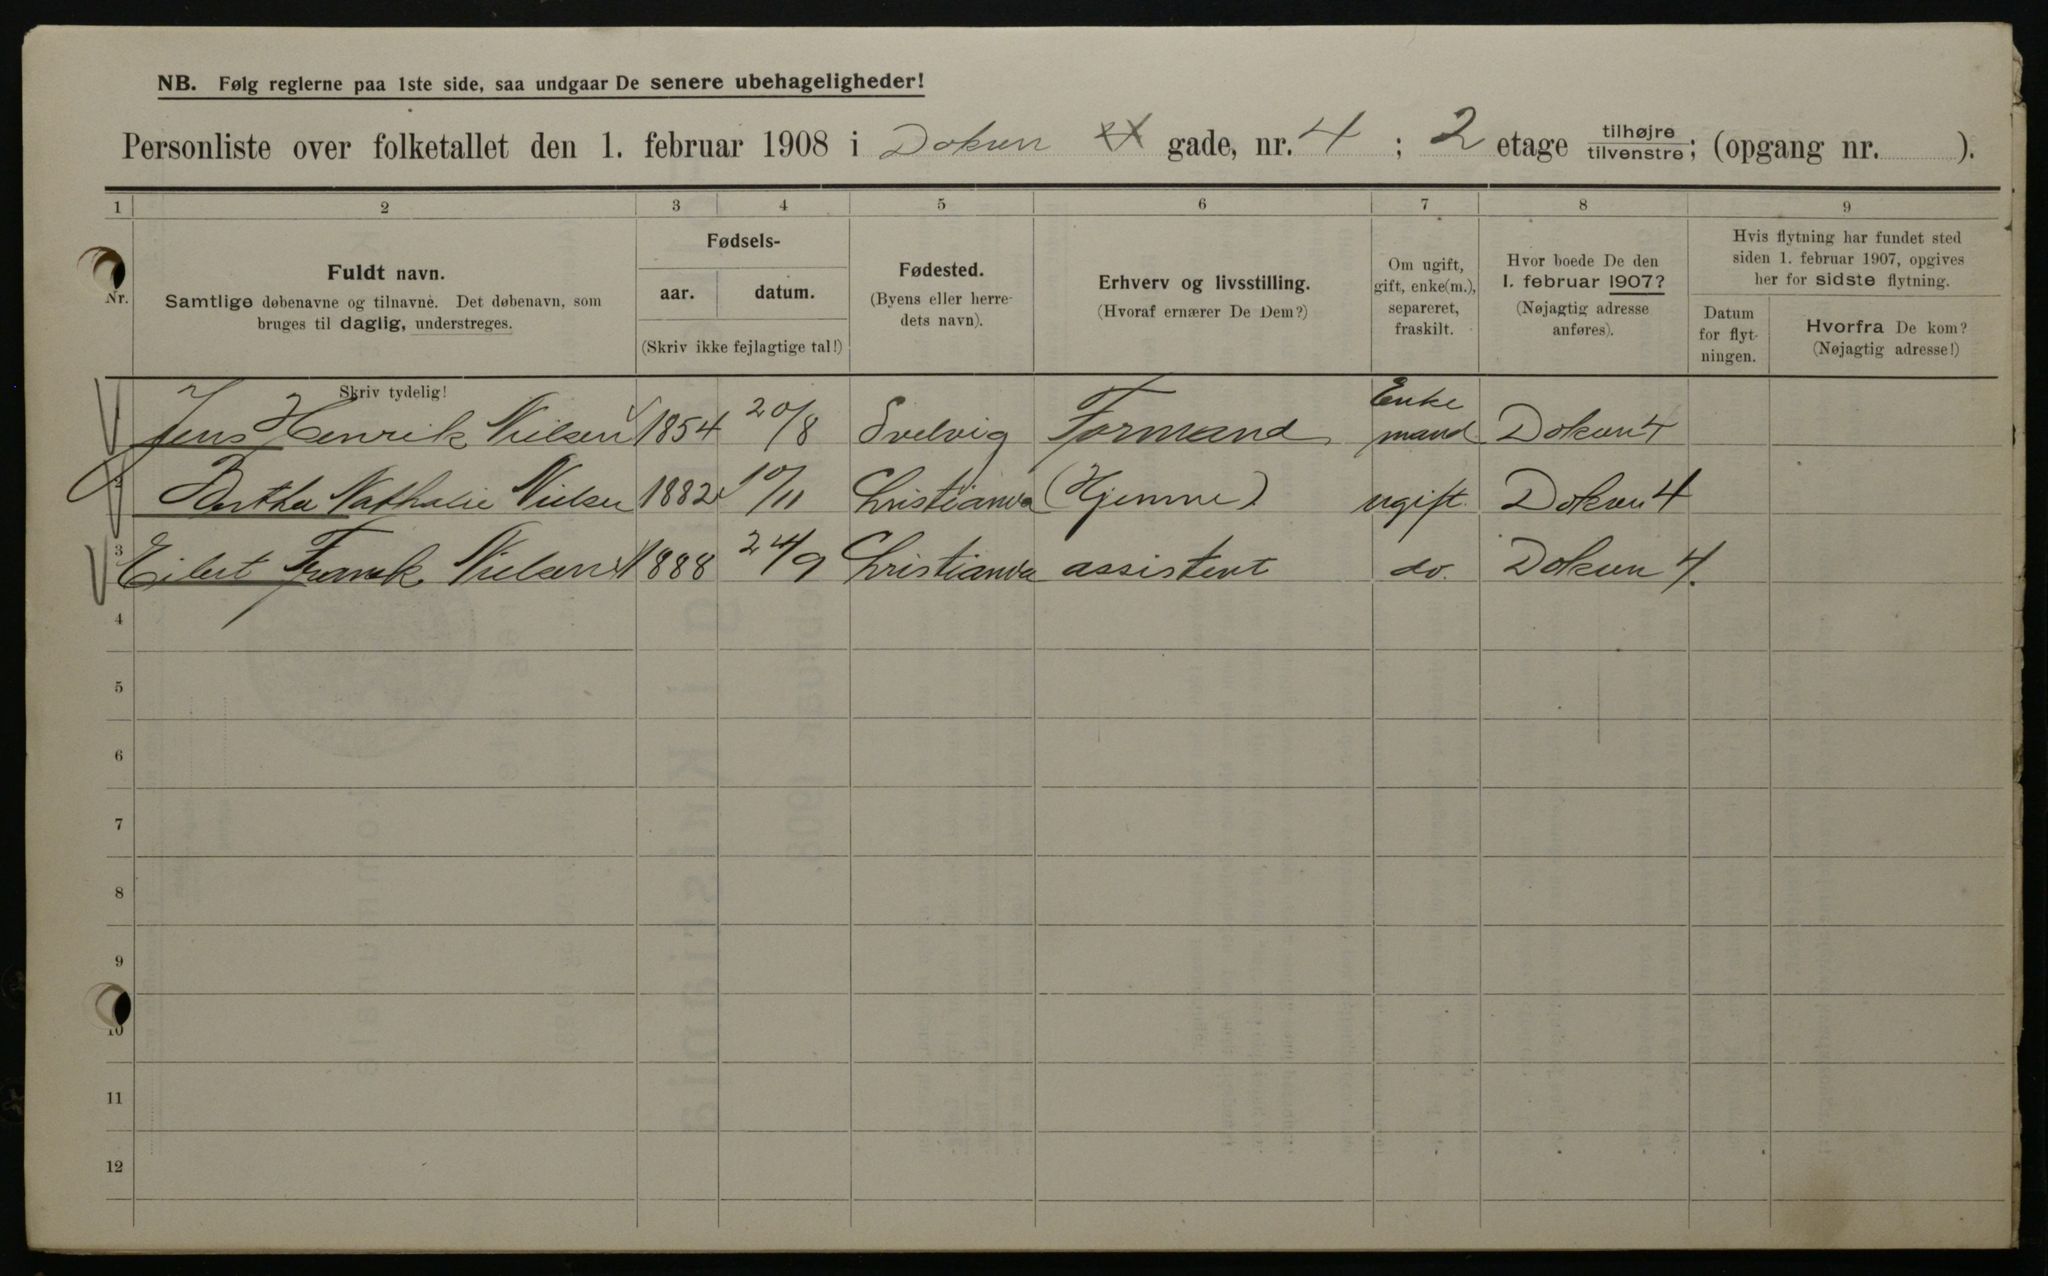 NB. Følg reglerne paa 1ste side, saa undgaar De senere ubehageligheder!
Personliste over folketallet den 1. februar 1908 i Dokven gade, nr. 4 ; 2 etage tilhøjre/tilvenstre; (opgang nr. ).
1 2 3 4 5 6 7 8 9
Nr.
Fuldt navn.
Samtlige døbenavne og tilnavne. Det døbenavn, som
bruges til daglig, understreges.
Fødsels-
aar. datum.
(Skriv ikke fejlagtige tal!)
Fødested.
(Byens eller herre-
dets navn).
Erhverv og livsstilling.
(Hvoraf ernærer De Dem?)
Om ugift,
gift, enke(m.),
separeret,
fraskilt.
Hvor boede De den
1. februar 1907?
(Nøjagtig adresse
anføres).
Hvis flytning har fundet sted
siden 1. februar 1907, opgives
her for sidste flytning.
Datum
for flyt-
ningen.
Hvorfra De kom?
(Nøjagtig adresse!)
Skriv tydelig!
Jens Henrik Nielsen 1854 20/8 Svelvig Formand Enke mand Dokven 4
Bertha Nathalie Nielsen 1882 10/11 Christiania (Hjemme) ugift. Dokven 4
3 Eilert Frank Nielsen 1888 24/9 Christiania assistent do. Dokven 4.
4
5
6
7
8
9
10
11
12